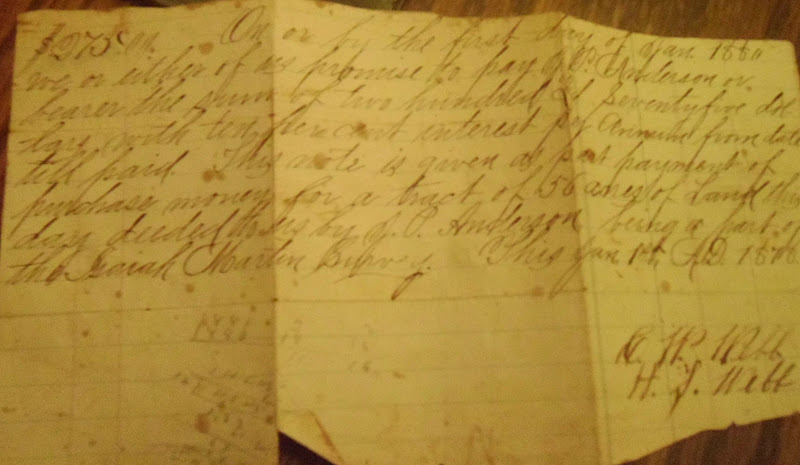 $275.00. On or by the first day of Jan. 1880
we or either of us promise to pay J. P. Anderson or
bearer the sum of two hundred & seventyfive dol
lars with ten per cent interest per annum from date
till paid. This note is given as part payment of
purchase money for a tract of 56 acres of Land this
day deeded to us by J. P. Anderson being a part of
the Isaiah Martin Survey. This Jan 1st A.D. 1878
Webb
H. J. Webb